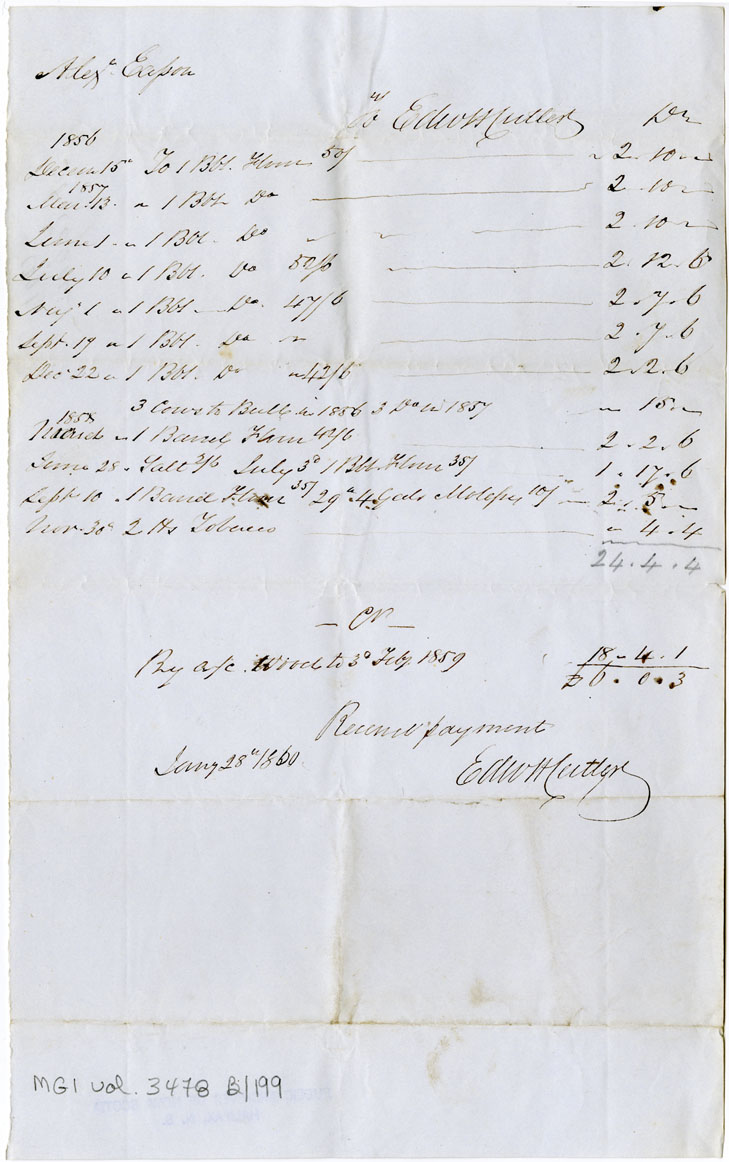 Alexr Eason
To Edw H Cutler Dr
1856
Decem 15th To 1 Bbl. Flour 50/ " 2 . 10 "
1857
Mar. 13 " 1 Bbl. Do 2 . 10 "
June 1 " 1 Bbl. Do " " 2 . 10 "
July 10 " 1 Bbl. Do 52/6 2 . 12 . 6
Augt 1 " 1 Bbl. Do. 47/6 2 . 7 . 6
Sept. 19 " 1 Bbl. Do " 2 . 7 . 6
Decr 22 " 1 Bbl. Do " 42/6 2 . 2 . 6
3 Cows to Bull in 1856 3 Do in 1857 " 15 "
1858
March " 1 Barrel Flour 42/6 2 . 2 . 6
June 28 " Salt 2/6 July 3d 1 Bbl Flour 35/ 1 . 17 . 6
Sept 10 " 1 Barrel Flour 35/ 29th 4 Galls Molasses 10/ 2 . 5 "
Nov. 30th 2 lbs Tobacco " 4 . 4
24 . 4 . 4
— Cr —
By a/c. Wood to 3d Feby. 1859 18 . 4 . 1
0 . 0 . 3
Received payment
Jany 28th 1860 Edw H Cutler
MG1 vol. 3478 B/199
HALIFAX, N. S.